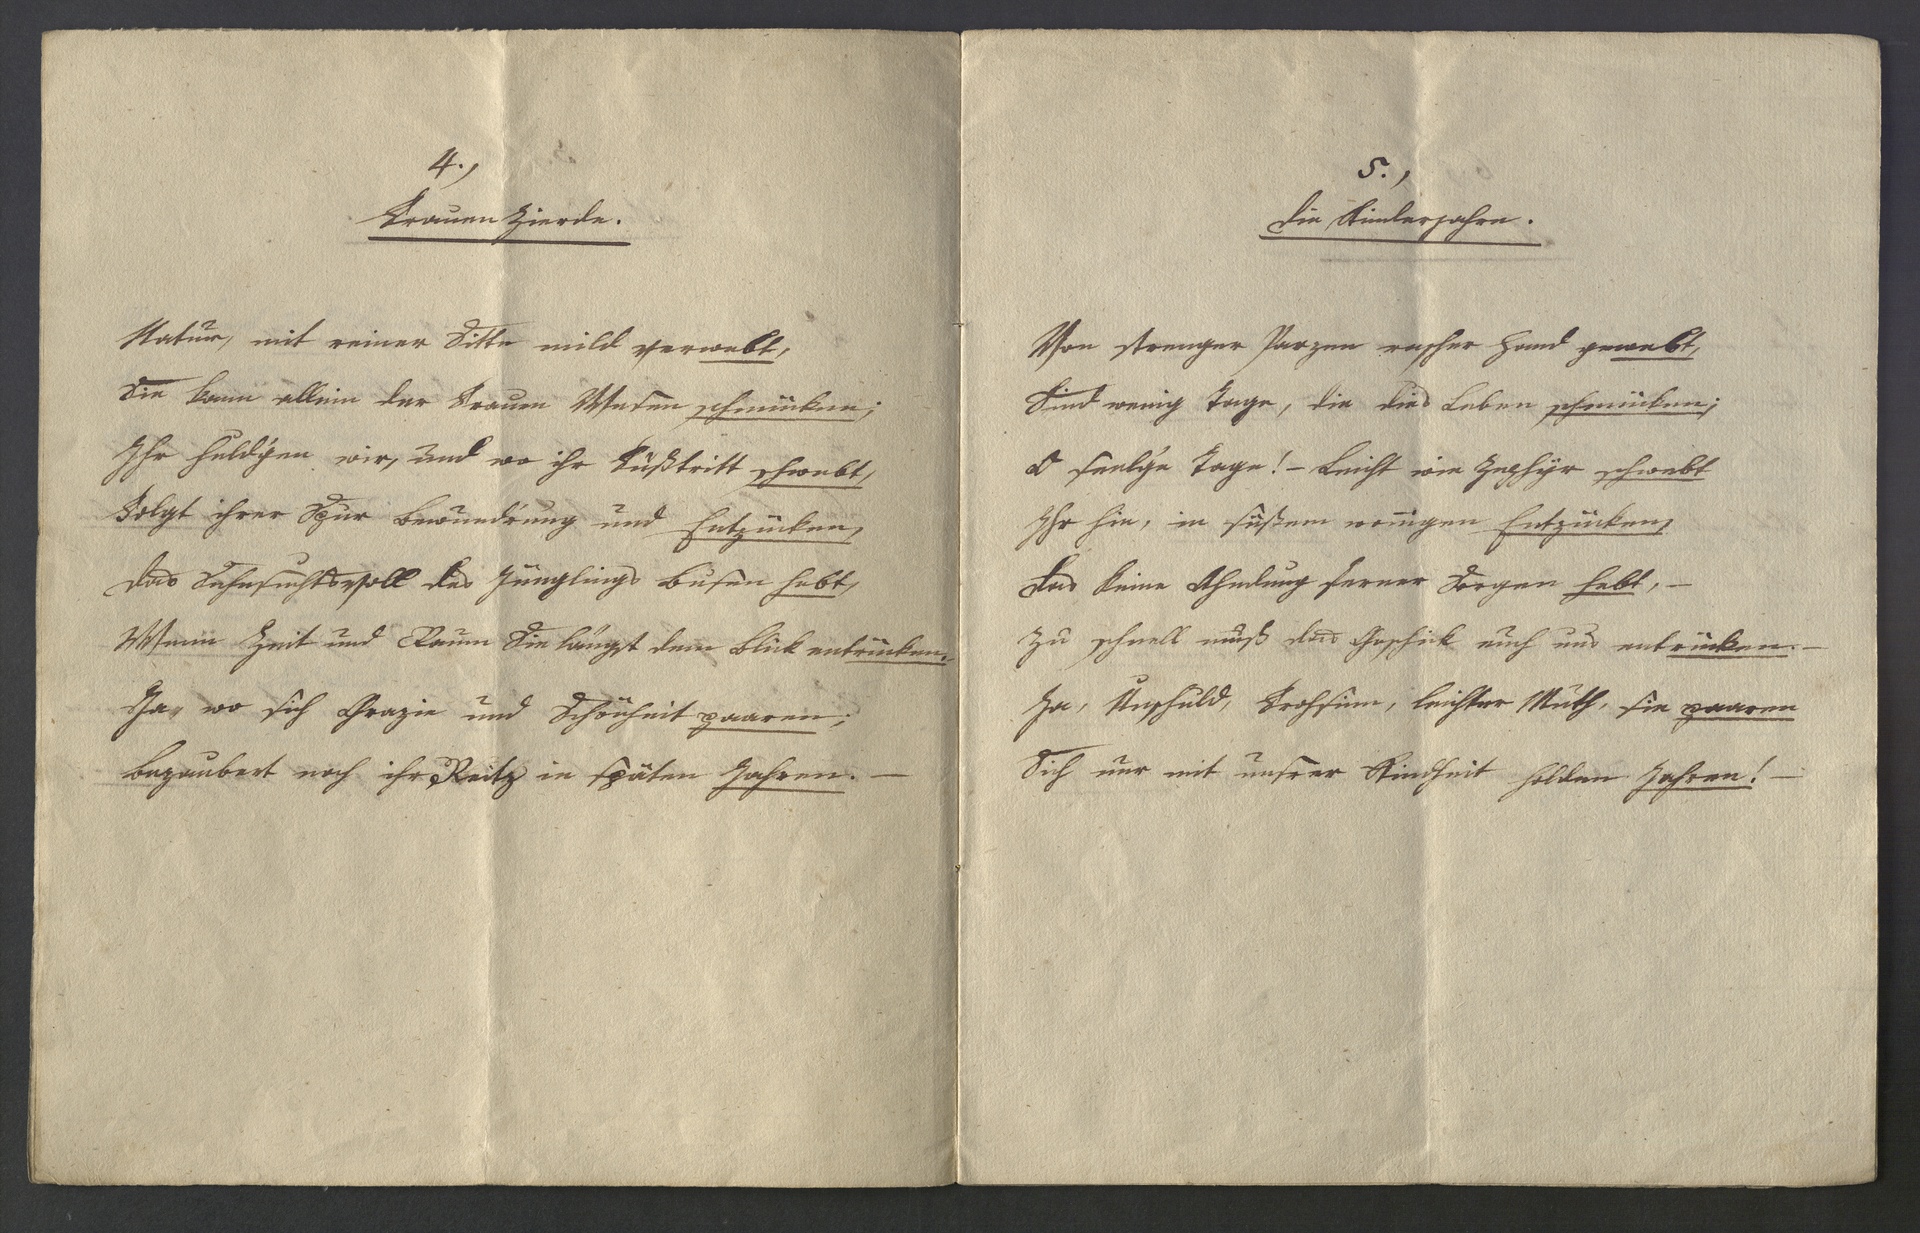 4.,
Frauen Zierde.
Natur, mit reiner Sitte mild verwebt,
Sie kann allein der Frauen Wesen schmücken;
Ihr huld'gen wir, und wo ihr Fußtritt schwebt,
Folgt ihrer Spur Bewund'rung und Entzücken,
Das Sehnsuchtsvoll des Jünglings Busen hebt,
Wenn Zeit und Raum Sie längst dem Blick entrücken.
Ja, wo sich Grazie und Schönheit paaren;
Bezaubert noch ihr Reitz in späten Jahren. —
5.,
Die Kinderjahre.
Von strenger Parzen rascher Hand gewebt,
Sind wenig Tage, die dies Leben schmücken;
O seel'ge Tage! – Leicht wie Zephÿr schwebt
Ihr hin, in süßem wonnigen Entzücken,
Das keine Ahndung ferner Sorgen hebt, –
Zu schnell muß das Geschick euch uns entrücken. —
Ja, Unschuld, Frohsinn, leichter Muth, sie paaren
Sich nur mit unsrer Kindheit holden Jahren! —